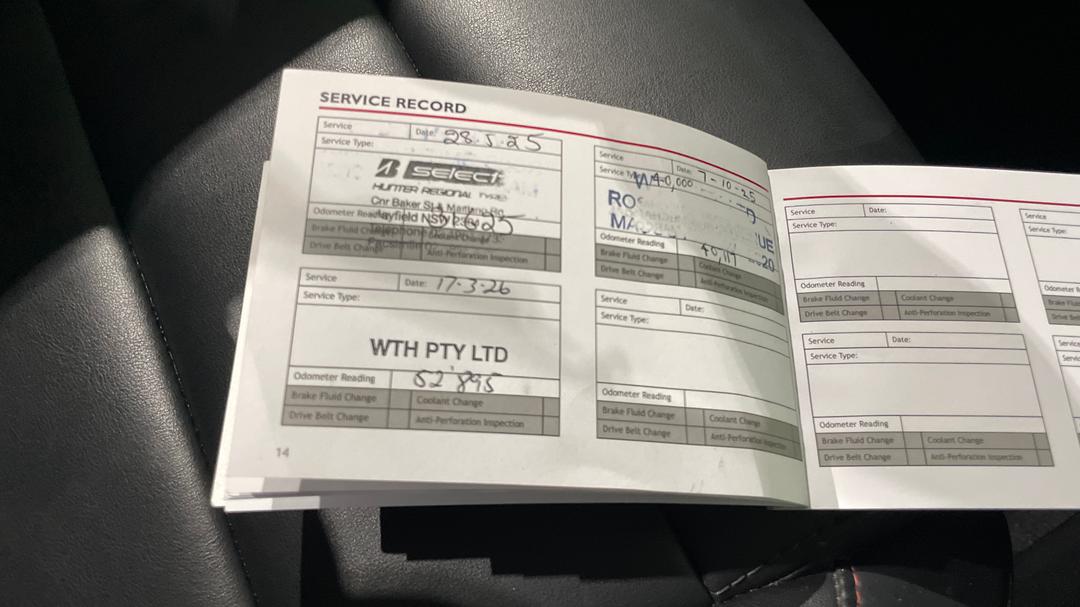 SERVICE RECORD
Service Date: 28.5.25
Service Type:
SELECT
HUNTER REGIONAL TYRES
Cnr Baker St & Maitland Rd
Mayfield NSW
Odometer Reading
Brake Fluid Change
Drive Belt Change Anti-Perforation Inspection
Service Date: 17.3.26
Service Type:
WTH PTY LTD
Odometer Reading 52'895
Brake Fluid Change Coolant Change
Drive Belt Change Anti-Perforation Inspection
14
Service Date: 7-10-25
Service Type: 40,000
ROS
Odometer Reading 40,117
Brake Fluid Change Coolant Change
Drive Belt Change Anti-Perforation Inspection
Service Date:
Service Type:
Odometer Reading
Brake Fluid Change Coolant Change
Drive Belt Change Anti-Perforation Inspection
Service Date:
Service Type:
Odometer Reading
Brake Fluid Change Coolant Change
Drive Belt Change Anti-Perforation Inspection
Service Date:
Service Type:
Odometer Reading
Brake Fluid Change Coolant Change
Drive Belt Change Anti-Perforation Inspection
Service
Service Type:
Odometer R
Brake Flui
Drive Be
Service
Servi